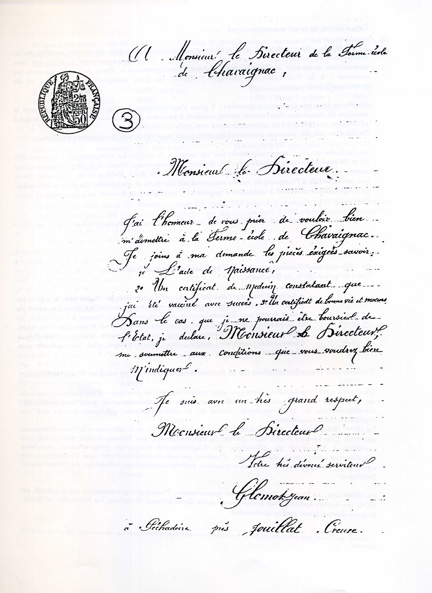 A Monsieur le Directeur de la Ferme-école
de Chavaignac,
RÉPUBLIQUE FRANÇAISE
3
Monsieur le Directeur
J'ai l'honneur de vous prier de vouloir bien
m'admettre à la Ferme-école de Chavaignac.
Je joins à ma demande les pièces éxigées savoir:
1º L'acte de Naissance,
2º Un certificat de médecin constatant que
j'ai été vacciné avec succès, 3º Un certificat de bonne vie et mœurs
Dans le cas que je ne pourrais être boursier de
l'Etat, je déclare, Monsieur le Directeur
me soumettre aux conditions que vous voudrez bien
m'indiquer.
Je suis avec un très grand respect,
Monsieur le Directeur
Votre très dévoué serviteur
Jean
à près Jouillat Creuse.